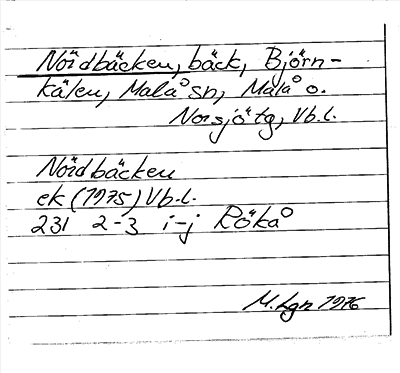 Nördbäcken, bäck, Björn-
kälen, Malå sn, Malå o.
Norsjö tg, Vb.l.
Nördbäcken
ek (1975) Vb.l.
231 2-3 i-j Rökå
M.Lgn 1976